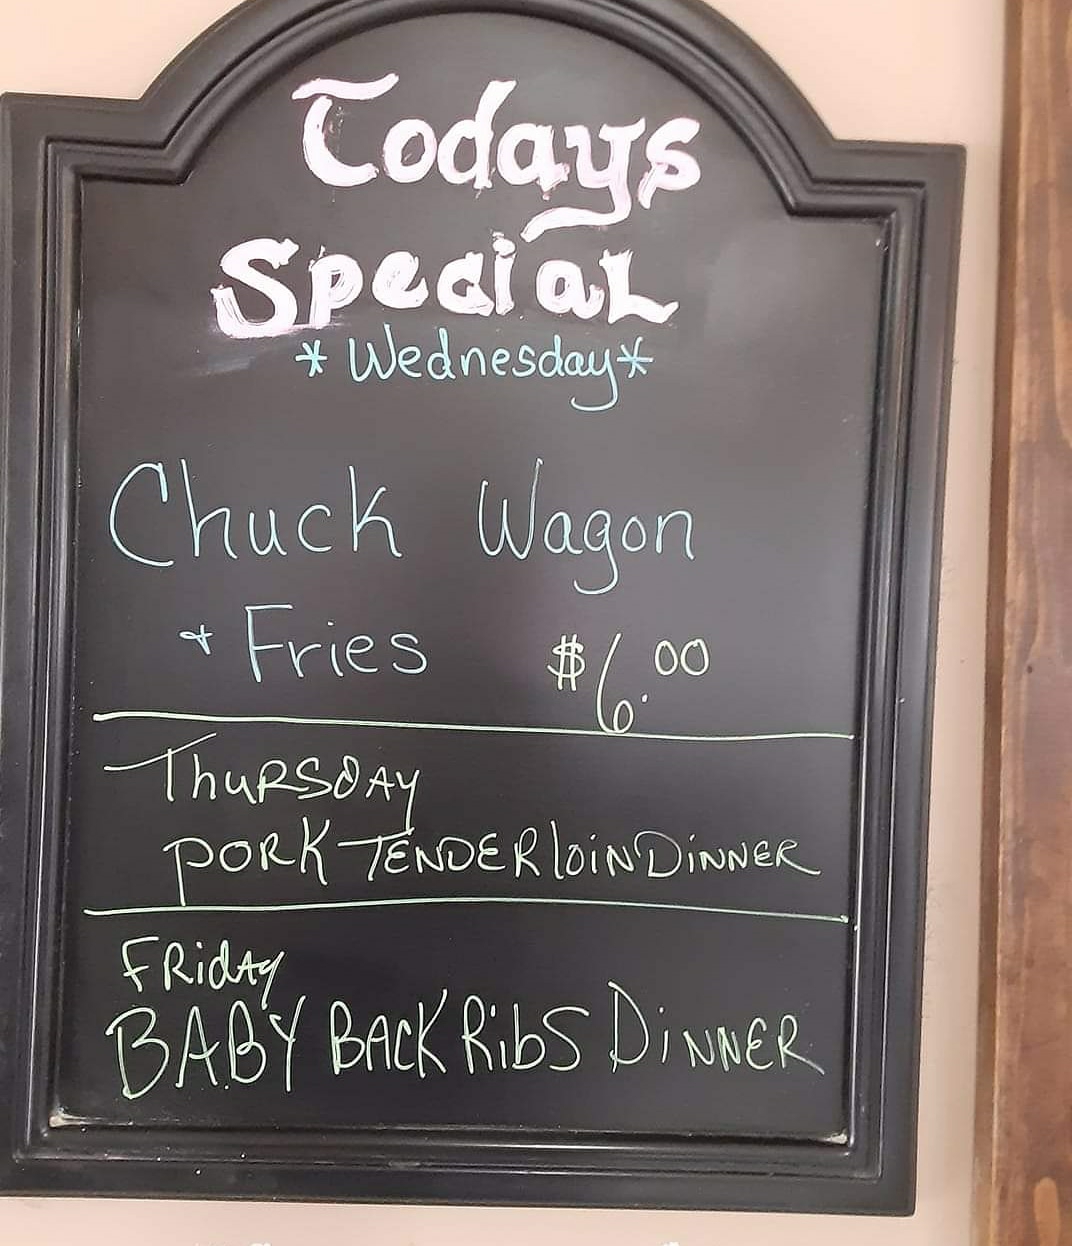 Todays
Special
*Wednesday*
Chuck Wagon
+ Fries $6.00
Thursday
PORK TENDERloin DiNNER
FRidAy
BABY BACK RibS DiNNER